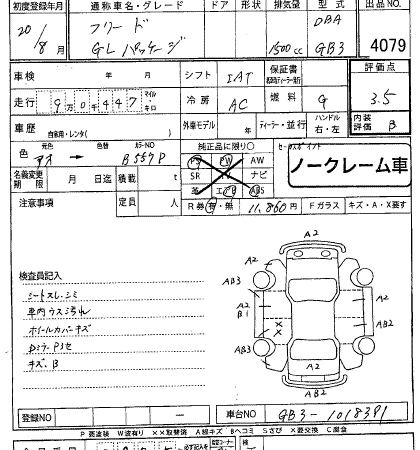 初度登録年月 通称車名・グレード ドア 形状 排気量 型式 出品NO
20/8月 フリード GLパッケージ 1500cc DBA GB3 4079
車検 年 月 シフト IAT 保証書 評価点
走行 9万0千447 マイル・キロ 冷房 AC 燃料 G 3.5
車歴 自家用・レンタ( ) 外車モデル 年 ディーラー・並行 ハンドル 右・左 内装評価 B
色 元色 色替 カラーNO B557P
純正品に限り○ セールスポイント
PS PW AW
SR TV ナビ
革 エアB ABS
ノークレーム車
名義変更期限 月 日迄 積載 t
注意事項 定員 人 R券 有・無 11,860円 Fガラス キズ・A・X要す
検査員記入
シートスレ.シミ
車内ウスヨゴレ
ホイールカバーキズ
キズ.B
A2
A2
AB3
AB2
A2
B1
A2
AB2
××
AB3
AB3
A2
A2
登録NO ー 車台NO GB3-1018391
P要塗装 W波有り ××取替済 A線キズ Bヘコミ Sさび ×要交換 C腐食